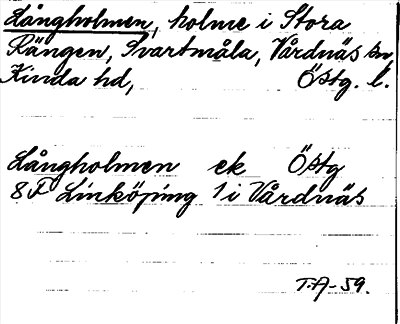 Långholmen, holme i Stora
Rängen, Svartmåla, Vårdnäs sn,
Kinda hd, Östg. l.
Långholmen ek Östg
8F Linköping 1 i Vårdnäs
T.A-59.